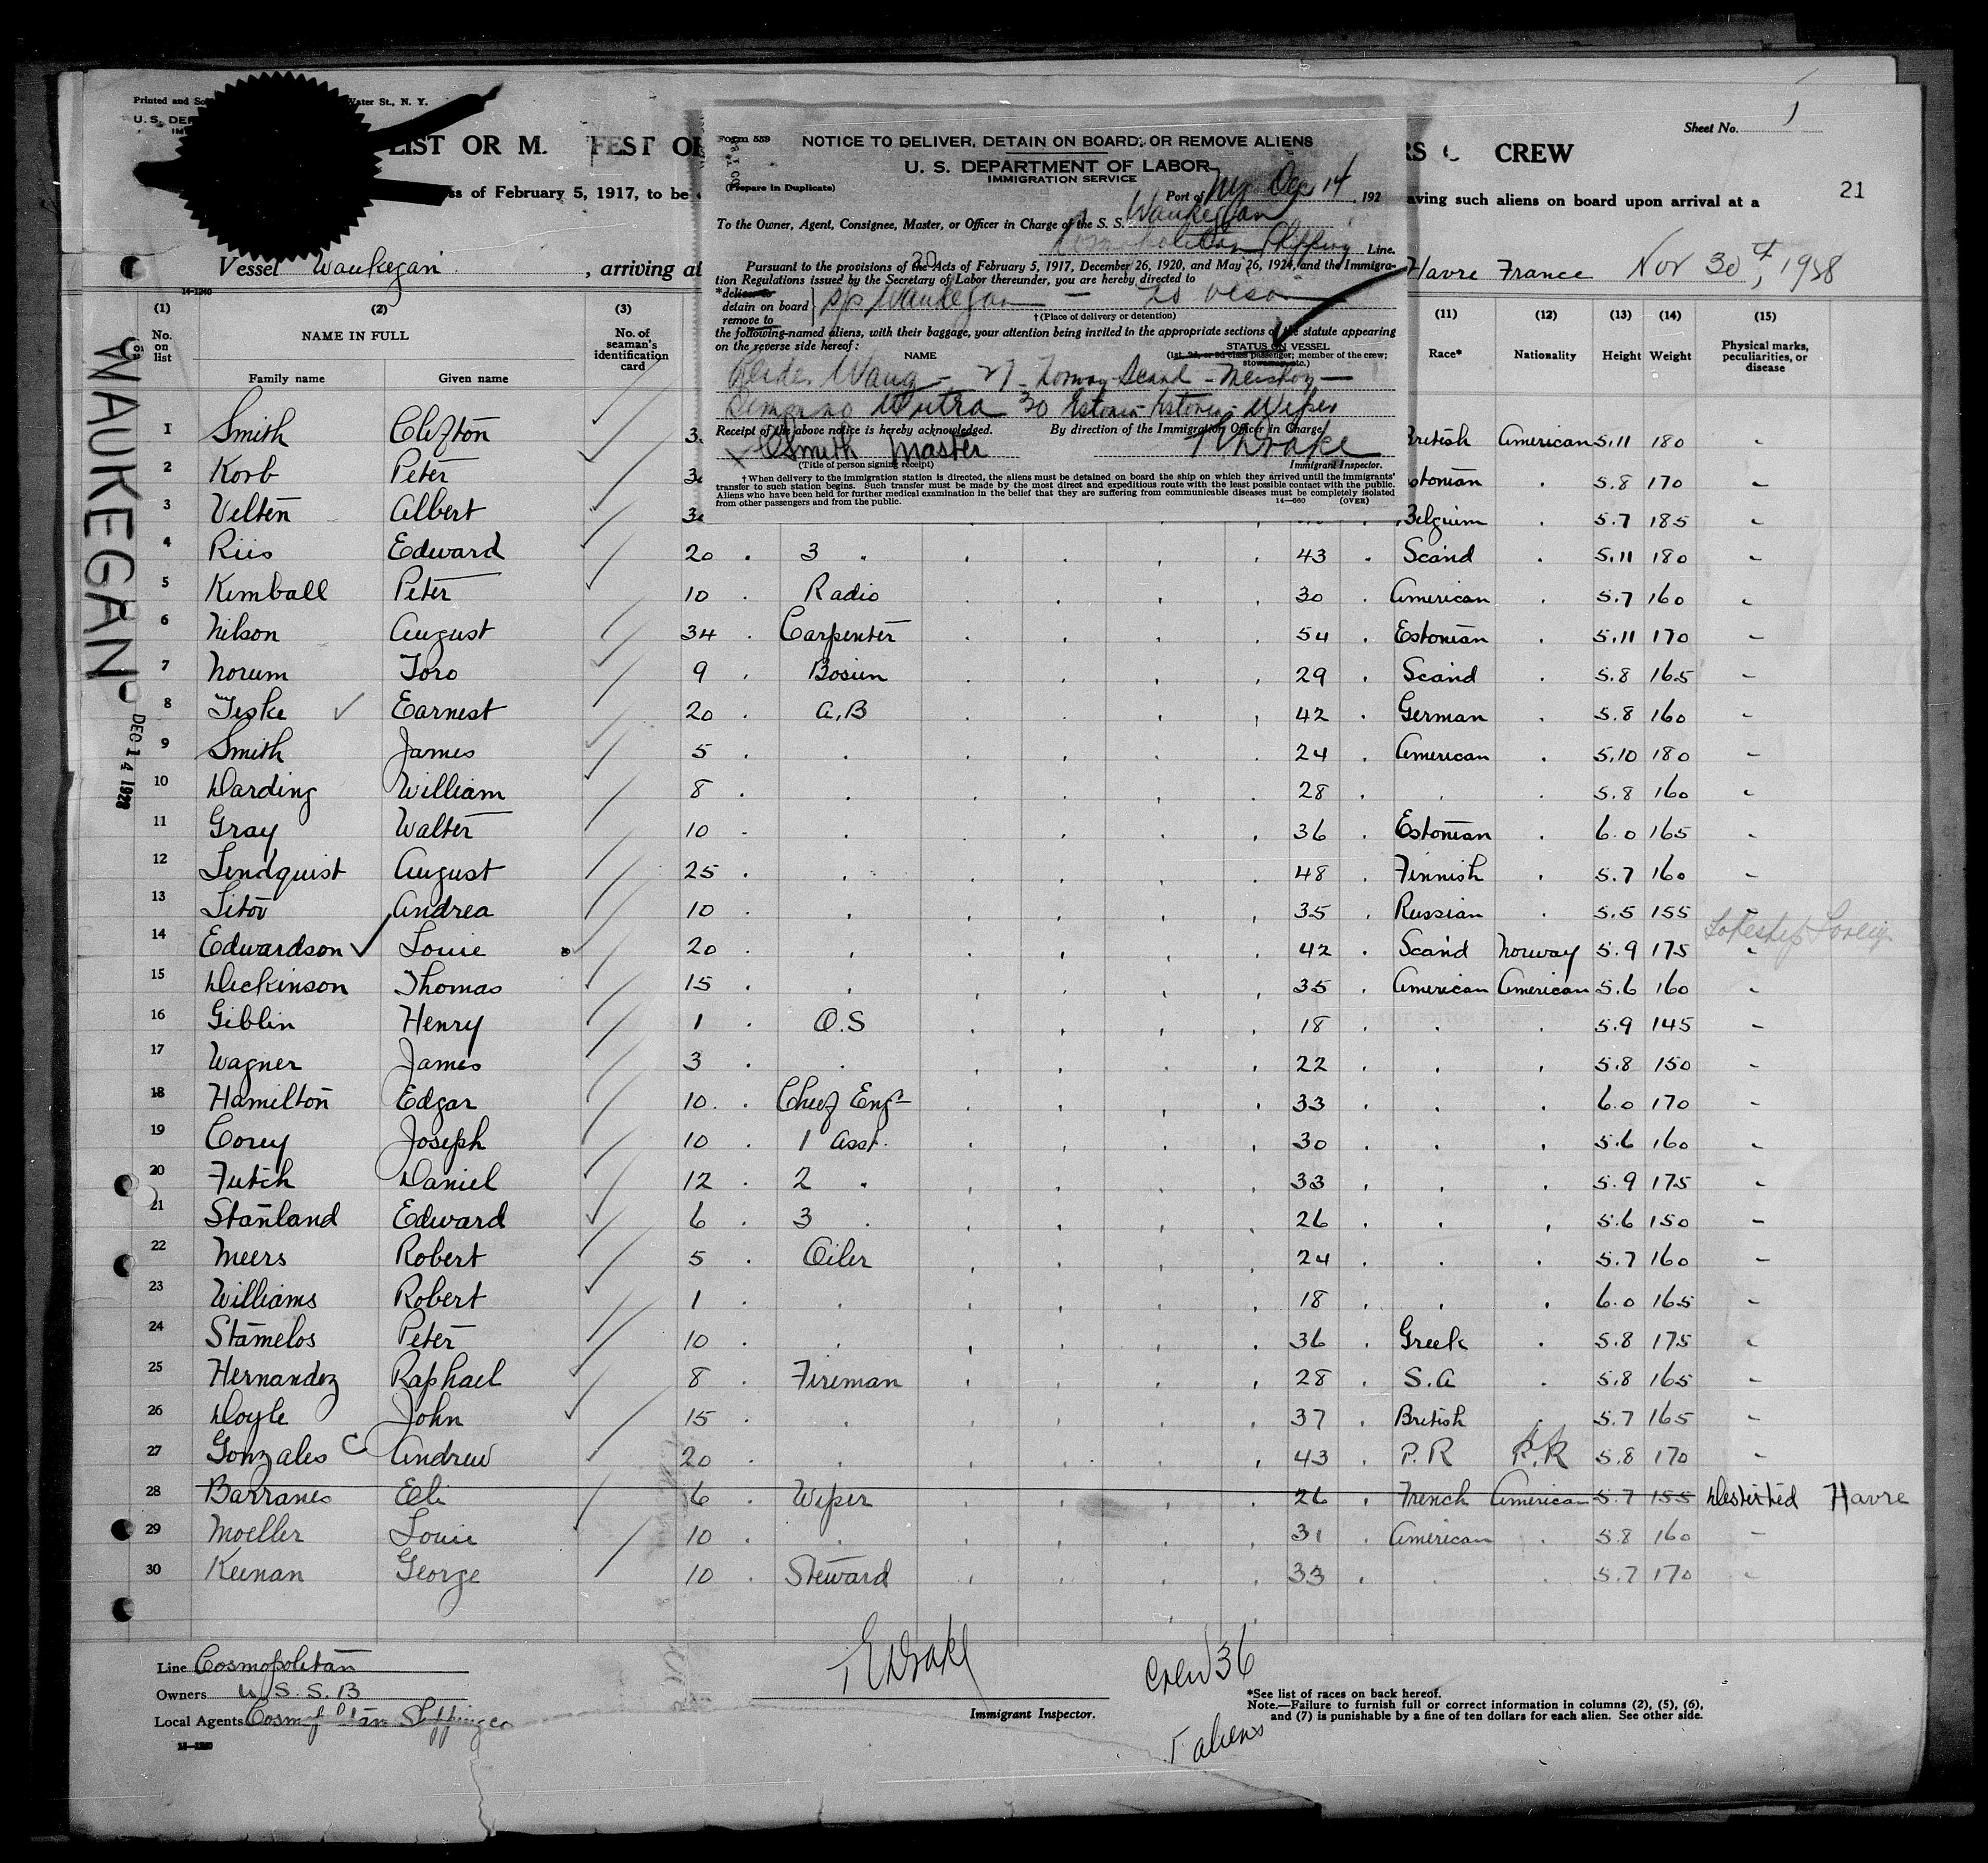 Printed and So Water St., N. Y.
U. S. DEP
LIST OR M. FEST OF RS CREW
Sheet No. 1
ss of February 5, 1917, to be aving such aliens on board upon arrival at a
21
Vessel Waukegan , arriving at Havre France Nov 30th, 1928
14-1240
Form 559
NOTICE TO DELIVER, DETAIN ON BOARD, OR REMOVE ALIENS
U. S. DEPARTMENT OF LABOR
IMMIGRATION SERVICE
(Prepare in Duplicate)
Port of NY Dec 14, 192
To the Owner, Agent, Consignee, Master, or Officer in Charge of the S. S. Waukegan
Cosmopolitan Shipping Line.
Pursuant to the provisions of the Acts of February 5, 1917, December 26, 1920, and May 26, 1924, and the Immigra-
tion Regulations issued by the Secretary of Labor thereunder, you are hereby directed to
*deliver to
detain on board S/S Waukegan
remove to
† (Place of delivery or detention)
the following-named aliens, with their baggage, your attention being invited in the appropriate sections of the statute appearing
on the reverse side hereof:
NAME
STATUS ON VESSEL
(1st, 2d, or 3d class passenger; member of the crew; stowaway, etc.)
Wang - 21 - Norway Scand -
Wutra 30 Estonia - Estonia - Wiper
Receipt of the above notice is hereby acknowledged. By direction of the Immigration Officer in Charge,
C Smith Master T E Drake
(Title of person signing receipt) Immigrant Inspector.
† When delivery to the immigration station is directed, the aliens must be detained on board the ship on which they arrived until the immigrants'
transfer to such station begins. Such transfer must be made by the most direct and expeditious route with the least possible contact with the public.
Aliens who have been held for further medical examination in the belief that they are suffering from communicable diseases must be completely isolated
from other passengers and from the public. 14—660 (OVER)
WAUKEGAN
DEC 14 1928
(1) (2) (3) (11) (12) (13) (14) (15)
No. on list NAME IN FULL No. of seaman's identification card Race* Nationality Height Weight Physical marks, peculiarities, or disease
Family name Given name
1 Smith Clifton 3 British American 5.11 180 -
2 Korb Peter 3 stonian . 5.8 170 -
3 Velten Albert 3 Belgium . 5.7 185 -
4 Riis Edward 20 . 3 . 43 . Scand . 5.11 180 -
5 Kimball Peter 10 . Radio 30 . American . 5.7 160 -
6 Nilson August 34 . Carpenter 54 . Estonian . 5.11 170 -
7 Norum Toro 9 . Bosun 29 . Scand . 5.8 165 -
8 Teske Earnest 20 . A.B 42 . German . 5.8 160 -
9 Smith James 5 . . 24 . American . 5.10 180 -
10 Darding William 8 . . 28 . . . 5.8 160 -
11 Gray Walter 10 . . 36 . Estonian . 6.0 165 -
12 Lindquist August 25 . . 48 . Finnish . 5.7 160 -
13 Litov Andrea 10 . . 35 . Russian . 5.5 155 -
14 Edwardson Louie 20 . . 42 . Scand Norway 5.9 175 -
15 Dickinson Thomas 15 . . 35 . American American 5.6 160 -
16 Giblin Henry 1 . O.S 18 . . . 5.9 145 -
17 Wagner James 3 . . 22 . . . 5.8 150 -
18 Hamilton Edgar 10 . Chief Engr 33 . . . 6.0 170 -
19 Corey Joseph 10 . 1 Asst. 30 . . . 5.6 160 -
20 Futch Daniel 12 . 2 . 33 . . . 5.9 175 -
21 Stanland Edward 6 . 3 . 26 . . . 5.6 150 -
22 Meers Robert 5 . Oiler 24 . . . 5.7 160 -
23 Williams Robert 1 . . 18 . . . 6.0 165 -
24 Stamelos Peter 10 . . 36 . Greek . 5.8 175 -
25 Hernandez Raphael 8 . Fireman 28 . S.A . 5.8 165 -
26 Doyle John 15 . . 37 . British . 5.7 165 -
27 Gonzales C Andrew 20 . . 43 . P.R P.R 5.8 170 -
28 Barranes Eli 6 . Wiper 26 . French American 5.7 155 Deserted Havre
29 Moeller Louie 10 . . 31 . American . 5.8 160 -
30 Keenan George 10 . Steward 33 . . . 5.7 170 -
Line Cosmopolitan
Owners U. S. S. B
Local Agents Cosmopolitan Shipping Co
T E Drake
Immigrant Inspector.
Crew 36
5 aliens
*See list of races on back hereof.
Note.—Failure to furnish full or correct information in columns (2), (5), (6),
and (7) is punishable by a fine of ten dollars for each alien. See other side.
14—1240